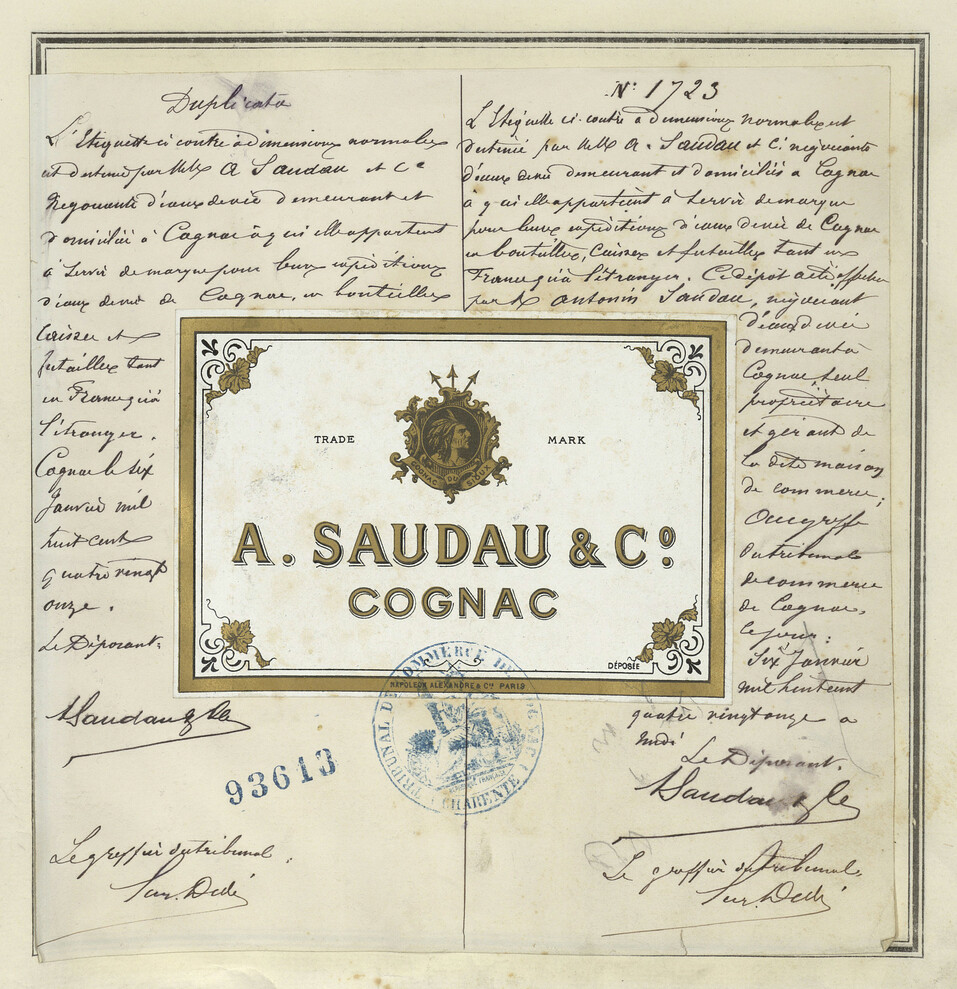 Duplicata
L'Etiquette ci contre à dimensions normales
est destinée par MM. A Saudau et Cie
Négociants d'eaux de vie demeurant et
domiciliés à Cognac à qui elle appartient
à servir de marque pour leurs expéditions
d'eaux de vie de Cognac, en bouteilles
caisses et
futailles tant
en France qu'à
l'étranger.
Cognac le six
Janvier mil
huit cent
quatre vingt
onze.
Le Déposant.
A Saudau & Cie
93613
Le greffier du tribunal.
N° 1723
L'Etiquette ci-contre à dimensions normales est
destinée par MM. A. Saudau et Cie négociants
d'eaux de vie demeurant et domiciliés à Cognac
à qui elle appartient à servir de marque
pour leurs expéditions d'eaux de vie de Cognac
en bouteilles, caisses et futailles tant en
France qu'à l'étranger. Ce dépôt a été effectué
par M. Antonin Saudau, négociant
d'eaux de vie
demeurant à
Cognac seul
propriétaire
et gérant de
la dite maison
de commerce;
Au greffe
du tribunal
de commerce
de Cognac,
ce jour:
Six Janvier
mil huit cent
quatre vingt onze à
midi
Le Déposant.
A Saudau & Cie
Le greffier du tribunal.
TRADE MARK
COGNAC DU SIOUX
A. SAUDAU & Cº
COGNAC
DÉPOSÉE
NAPOLEON ALEXANDRE & Cº PARIS
TRIBUNAL DE COMMERCE DE COGNAC
CHARENTE